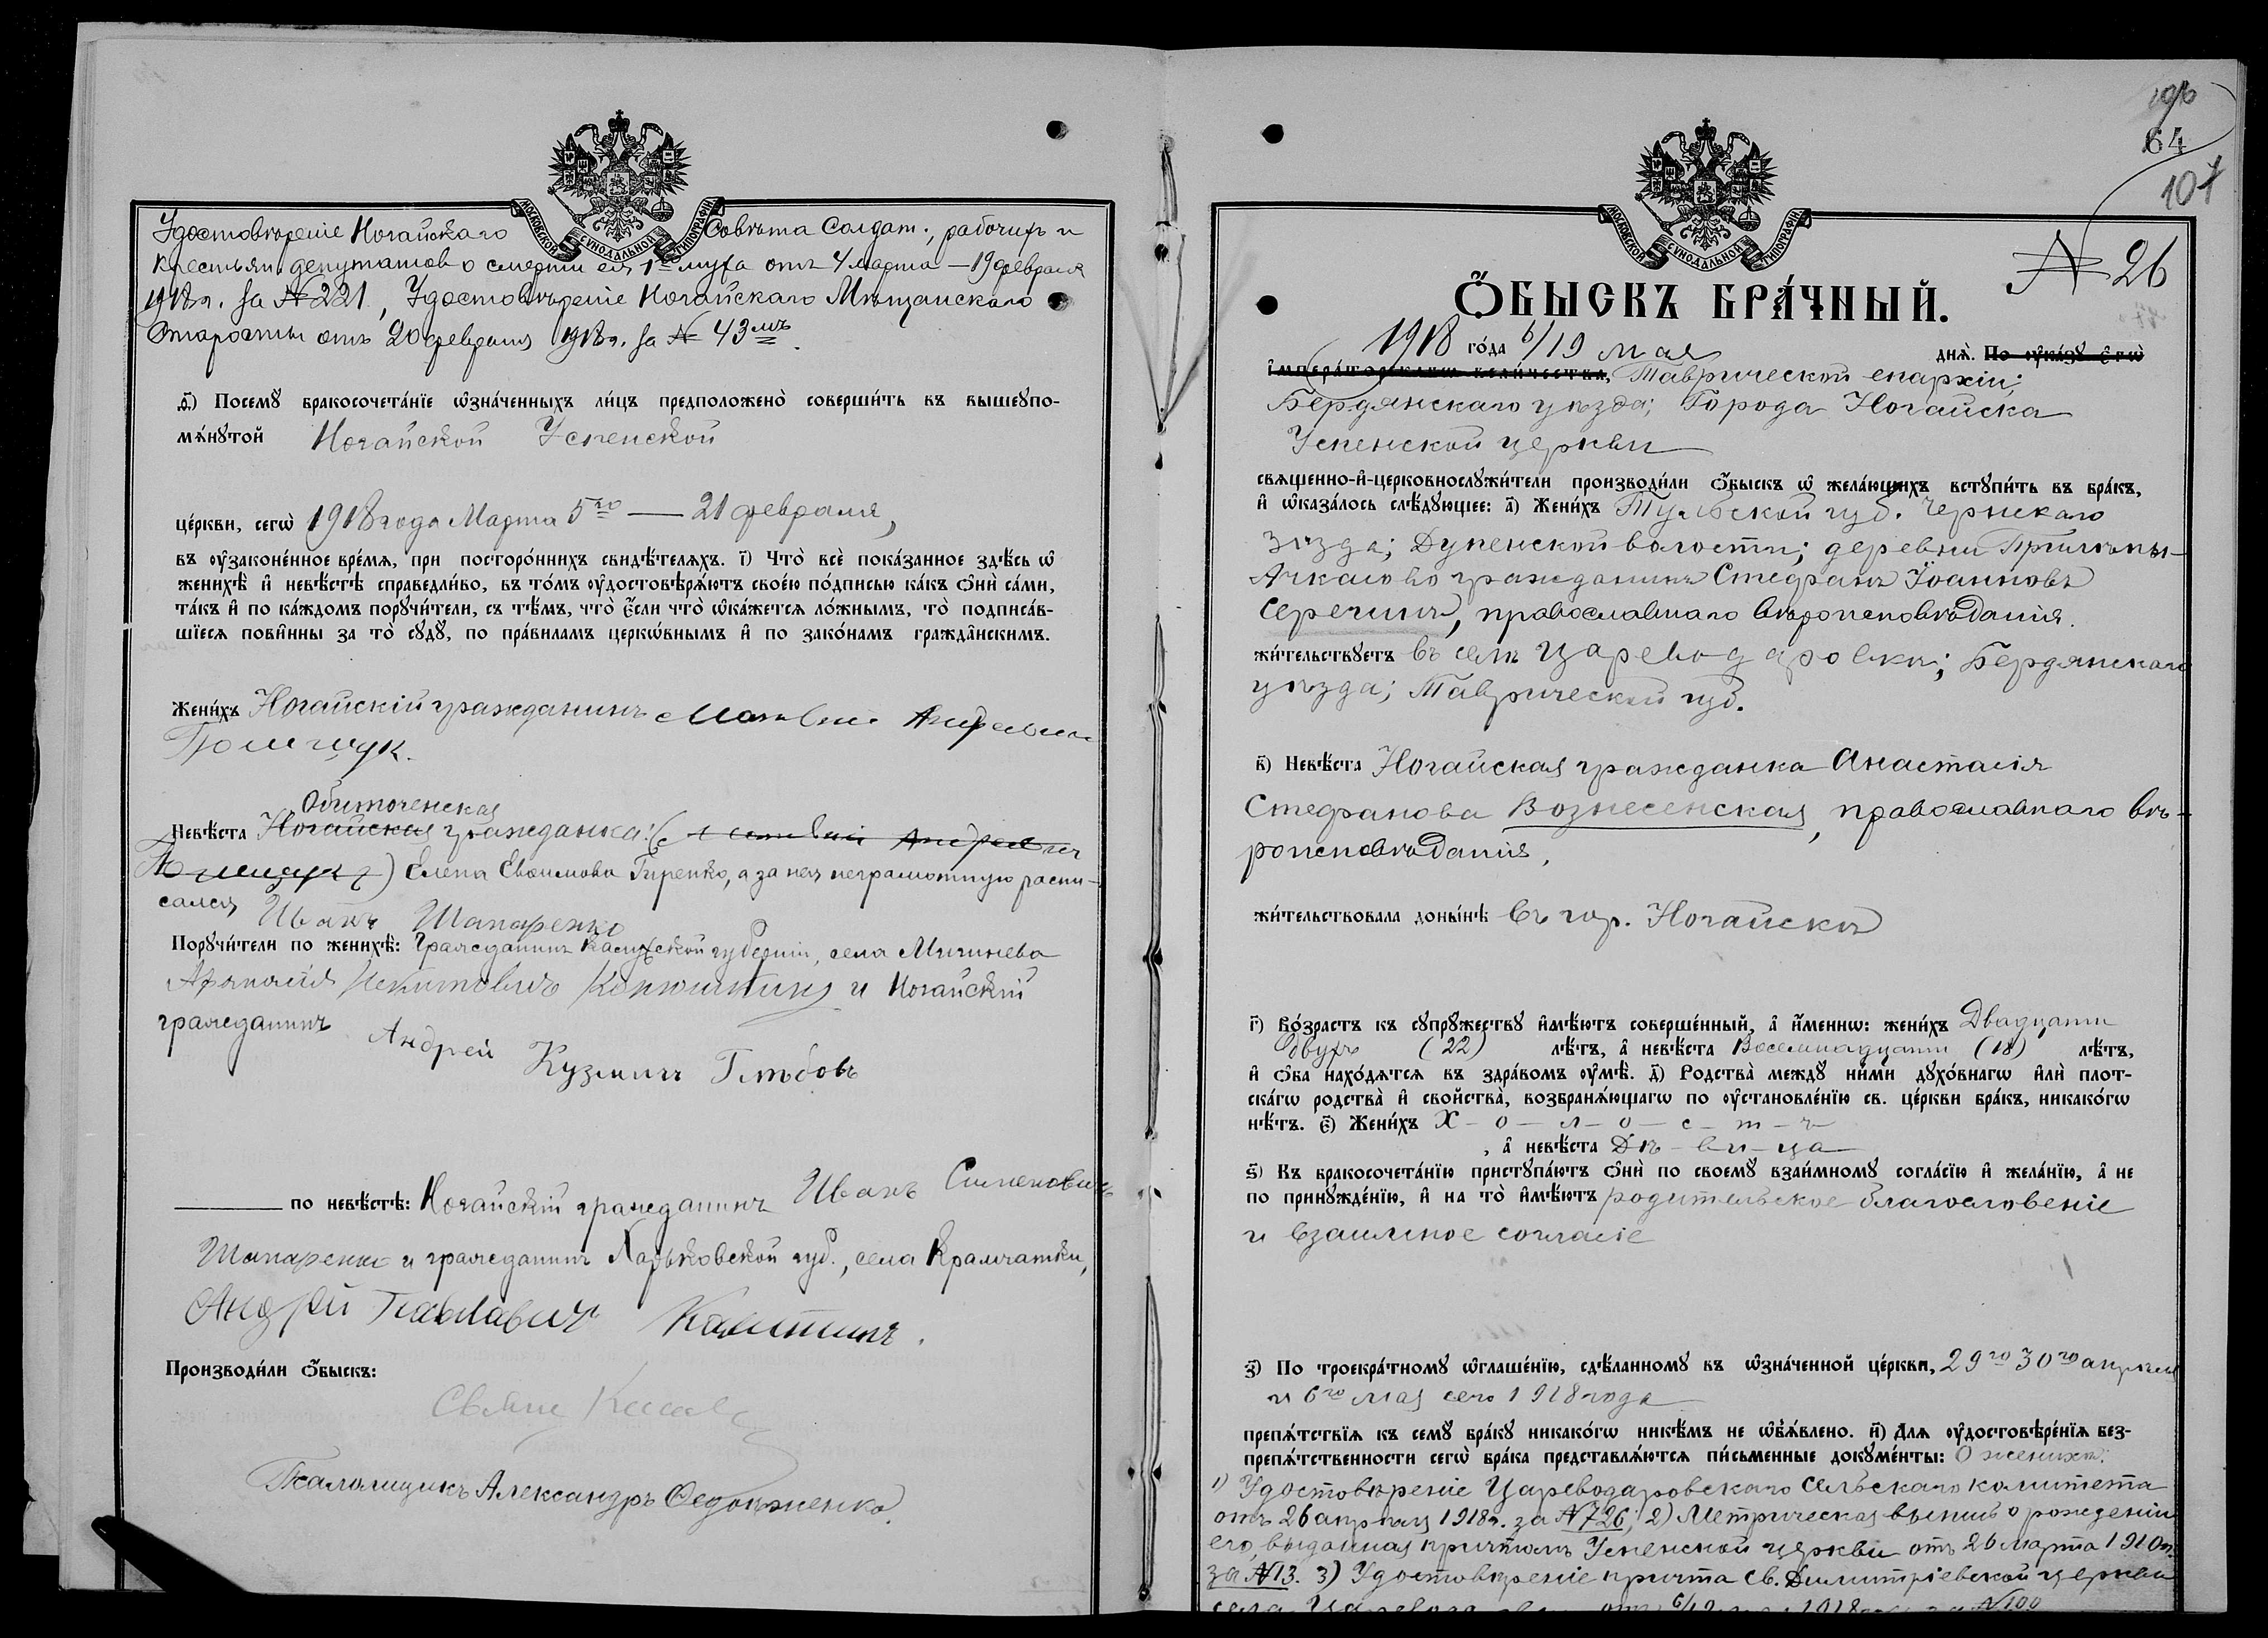 МОСКОВСКОЙ СѴНОДАЛЬНОЙ ТИПОГРАФІИ
Удостовѣреніе Ногайскаго Совѣта Солдат., рабочихъ и
крестьян. депутатов о смерти ея 1го мужа отъ 4 марта — 19 февраля
1918 г. за № 221, Удостовѣреніе Ногайскаго Мѣщанскаго
Старосты отъ 20 февраля 1918 г. за № 43мъ.
д҃) Посемꙋ бракосочета́нїе ѡ҆зна́ченныхъ ли́цъ предположено̀ соверши́ть въ вышеупо-
мѧ́нꙋтой Ногайской Успенской
це́ркви, сегѡ̀ 1918 года Марта 5го — 21 февраля,
въ оу҆законе́нное вре́мѧ, при посторо́ннихъ свидѣ́телѧхъ. і҃) Что̀ всѐ пока́занное здѣ́сь ѡ҆
женихѣ̀ и҆ невѣ́стѣ справедли́во, въ то́мъ оу҆достовѣрѧ́ютъ свое́ю по́дписью ка́къ ѻ҆нѝ са́ми,
та́къ и҆ по ка́ждомъ порꙋчи́тели, съ тѣ́мъ, что̀ є҆́сли что̀ ѡ҆ка́жетсѧ ло́жнымъ, то̀ подписа́в-
шїесѧ пови́нны за то̀ сꙋдꙋ̀, по пра́виламъ церко́внымъ и҆ по зако́намъ гражда́нскимъ.
Жени́хъ Ногайскій гражданинъ
Невѣ́ста Ногайская гражданка:
Обиточенская
Елена Евѳимова Гиренко, а за нея неграмотную распи-
сался Иванъ Шапаренко
Порꙋчи́тели по женихѣ̀: Гражданинъ Калужской губерніи, села Мичинева
и Ногайскій
гражданинъ Андрей Кузмичъ Глѣбовъ
по невѣ́стѣ: Ногайскій гражданинъ Иванъ Сименовичъ
Шапаренко и гражданинъ Харьковской губ., села Крамчатки,
Андрій Павлавичъ
Производи́ли ѻ҆́быскъ:
Псаломщикъ Александръ
196
64
107
№ 26
МОСКОВСКОЙ СѴНОДАЛЬНОЙ ТИПОГРАФІИ
Ѻ҆БЫСКЪ БРА́ЧНЫЙ.
1918 го́да 6/19 мая днѧ̀. По оу҆ка́зꙋ є҆гѡ̀
и҆мпера́торскагѡ вели́чества, Таврической епархіи;
Бердянскаго уѣзда; Города Ногайска
Успенской церкви
свѧщенно-и҆-церковнослꙋжи́тели производи́ли ѻ҆́быскъ ѡ҆ жела́ющихъ встꙋпи́ть въ бра́къ,
и҆ ѡ҆каза́лось слѣ́дꙋющее: а҃) Жени́хъ Тульской губ. Чернскаго
уѣзда; Дупенской волости; деревни
гражданинъ Стефанъ Іоанновъ
Серегинъ, православнаго вѣроисповѣданія.
жи́тельствꙋетъ въ селѣ Цареводаровкѣ; Бердянскаго
уѣзда; Таврической губ.
в҃) Невѣ́ста Ногайская гражданка Анастасія
Стефанова Вознесенская, православнаго вѣ-
роисповѣданія,
жи́тельствовала доны́нѣ въ гор. Ногайскѣ
г҃) Во́зрастъ къ сꙋпрꙋ́жествꙋ и҆мѣ́ютъ соверше́нный, а҆ и҆́меннѡ: жени́хъ Двадцати
двухъ (22) лѣ́тъ, а҆ невѣ́ста Восемнадцати (18) лѣ́тъ,
и҆ ѻ҆́ба нахо́дѧтсѧ въ здра́вомъ оу҆мѣ̀. д҃) Родства̀ междꙋ̀ ни́ми дꙋхо́внагѡ и҆лѝ плот-
ска́гѡ родства̀ и҆ сво́йства̀, возбранѧ́ющагѡ по оу҆становле́нїю св. це́ркви бра́къ, никако́гѡ
нѣ́тъ. є҃) Жени́хъ Х – о – л – о – с – т – ъ
, а҆ невѣ́ста Дѣ – ви – ца
ѕ҃) Къ бракосочета́нїю пристꙋпа́ютъ ѻ҆нѝ по своемꙋ̀ взаи́мномꙋ согла́сїю и҆ жела́нїю, а҆ не
по принꙋжде́нїю, и҆ на то̀ и҆мѣ́ютъ родительское благословеніе
и взаимное согласіе
з҃) По троекра́тномꙋ ѡ҆глаше́нїю, сдѣ́ланномꙋ въ ѡ҆зна́ченной це́ркви, 29го 30го апрѣля
и 6го мая сего 1918 года
препѧ́тствїѧ къ семꙋ̀ бра́кꙋ никако́гѡ никѣ́мъ не ѡ҆б̾ѧ́влено. и҃) Длѧ̀ оу҆достовѣре́нїѧ без-
препѧ́тственности сегѡ̀ бра́ка представлѧ́ютсѧ пи́сьменные докꙋме́нты: О женихѣ:
1) Удостовѣреніе Цареводаровскаго Сельскаго комитета
отъ 26 апрѣля 1918 г. за № 726; 2) Метрическая выпись о рожденіи
его, выданная причтомъ Успенской церкви отъ 26 марта 1910 г.
за № 13. 3) Удостовѣреніе причта Св. Димитріевской церкви